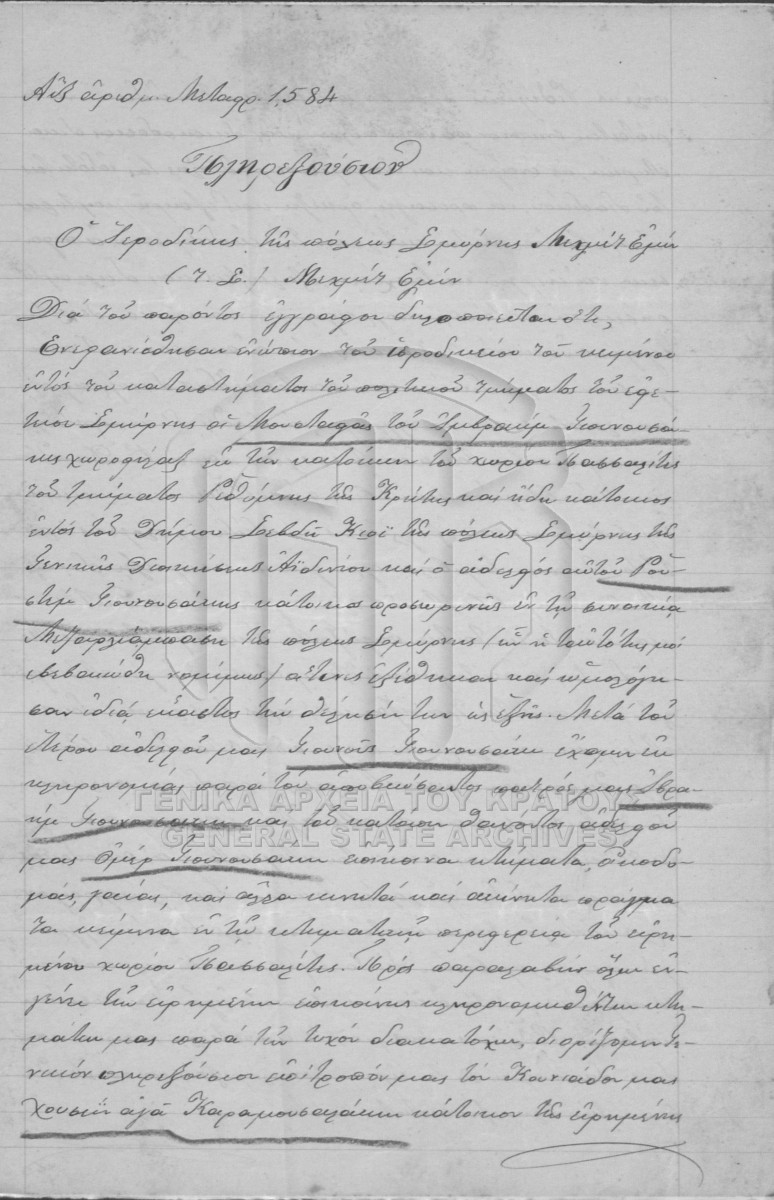 Αὔξ ἀριθμ. Μεταφρ. 1,584
Πληρεξούσιον
Ὁ Ἱεροδίκης τῆς πόλεως Σμύρνης Μεχμὲτ Ἐμὶν
(Τ. Σ.) Μεχμὲτ Ἐμὶν
Διὰ τοῦ παρόντος ἐγγράφου δηλοποιεῖται ὅτι,
Ἐνεφανίσθησαν ἐνώπιον τοῦ ἱεροδικείου τοῦ κειμένου
ἐντὸς τοῦ καταστήματος τοῦ πολιτικοῦ τμήματος τοῦ ἐφε-
τείου Σμύρνης οἱ Μουσταφᾶς τοῦ Ἰμβραὴμ Γιουνουσά-
κης χωροφύλαξ ἐκ τῶν κατοίκων τοῦ χωρίου Πασσαλίτες
τοῦ τμήματος Ρεθύμνης τῆς Κρήτης καὶ ἤδη κάτοικος
ἐντὸς τοῦ Δήμου Σεβδῆ Κιοΐ τῆς πόλεως Σμύρνης τῆς
Γενικῆς Διοικήσεως Ἀϊδινίου καὶ ὁ ἀδελφὸς αὐτοῦ Ρου-
στὲμ Γιουνουσάκης κάτοικος προσωρινῶς ἐν τῇ συνοικίᾳ
τῆς πόλεως Σμύρνης (ὧν ἡ ταὐτότης μοὶ
ἐβεβαιώθη νομίμως) οἵτινες ἐξέθηκαν καὶ ὡμολόγη-
σαν ἰδίᾳ ἕκαστος τὴν θέλησίν των ὡς ἑξῆς. Μετὰ τοῦ
ἑτέρου ἀδελφοῦ μας Γιουνοὺς Γιουνουσάκη ἔχομεν ἐκ
κληρονομίας παρὰ τοῦ ἀποβιώσαντος πατρός μας Ἰβρα-
ὴμ Γιουνουσάκη καὶ τοῦ κατόπιν θανόντος ἀδελφοῦ
μας Ὀμὲρ Γιουνουσάκη ἐπίκοινα κτήματα, οἰκοδο-
μάς, γαίας, καὶ ἄλλα κινητὰ καὶ ἀκίνητα πράγμα
τα κείμενα ἐν τῇ κτηματικῇ περιφερείᾳ τοῦ εἰρη-
μένου χωρίου Πασσαλίτες. Πρὸς παραλαβὴν ὅλων ἐν-
γένει τῶν εἰρημένων ἐπικοίνως κληρονομηθέντων κτη-
μάτων μας παρὰ τῶν τυχὸν διακατόχων, διορίζομεν Γε-
νικὸν πληρεξούσιον ἐπίτροπόν μας τὸν Κουνιάδον μας
Χουσεῒν ἀγᾶ Καραμουσαλάκην κάτοικον τῆς εἰρημένης
ΓΕΝΙΚΑ ΑΡΧΕΙΑ ΤΟΥ ΚΡΑΤΟΥΣ
GENERAL STATE ARCHIVES